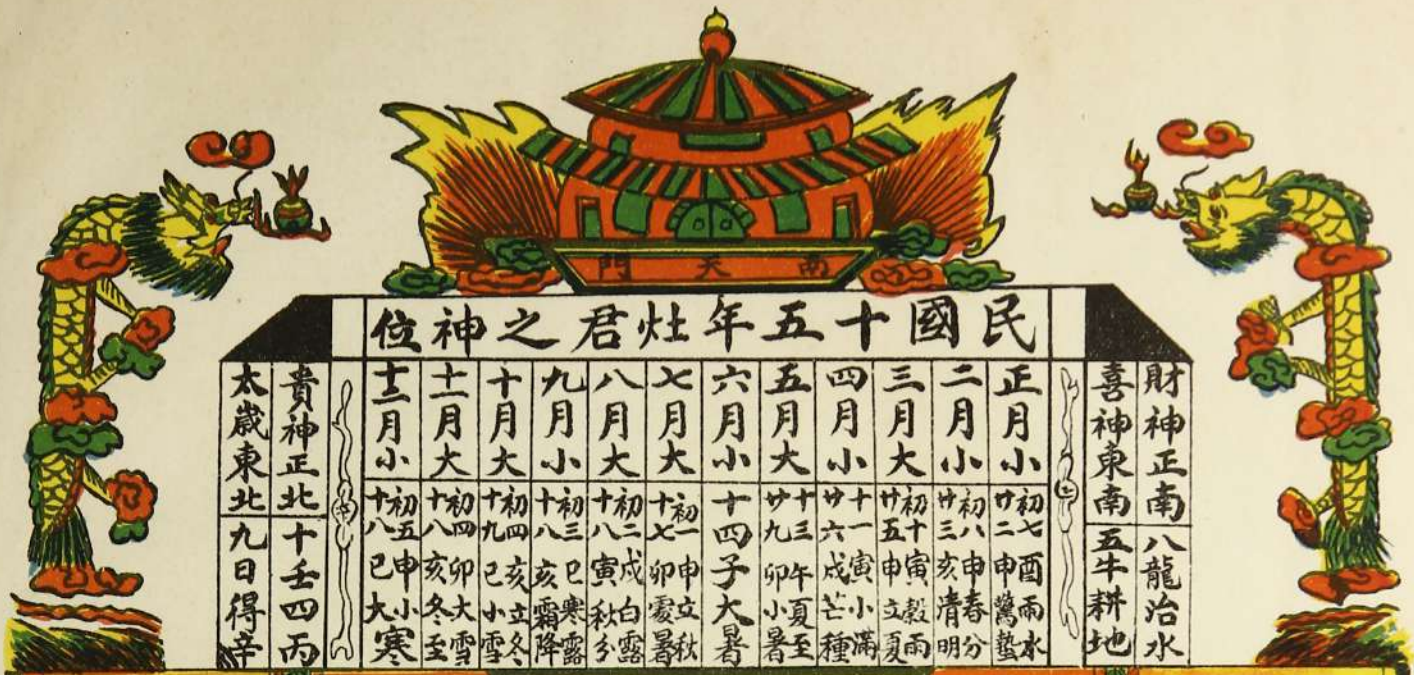 南天門
民國十五年灶君之神位
財神正南
八龍治水
喜神東南
五牛耕地
正月小
初七酉雨水
廿二申驚蟄
二月小
初八申春分
廿三亥清明
三月大
初十寅穀雨
廿五申立夏
四月小
十一寅小滿
廿六戌芒種
五月大
十三午夏至
廿九卯小暑
六月小
十四子大暑
七月大
初一申立秋
十七卯處暑
八月大
初二戌白露
十八寅秋分
九月小
初三巳寒露
十八亥霜降
十月大
初四亥立冬
十九巳小雪
十一月大
初四卯大雪
十八亥冬至
十二月小
初五申小
十八巳大寒
貴神正北
十壬四丙
太歲東北
九日得辛